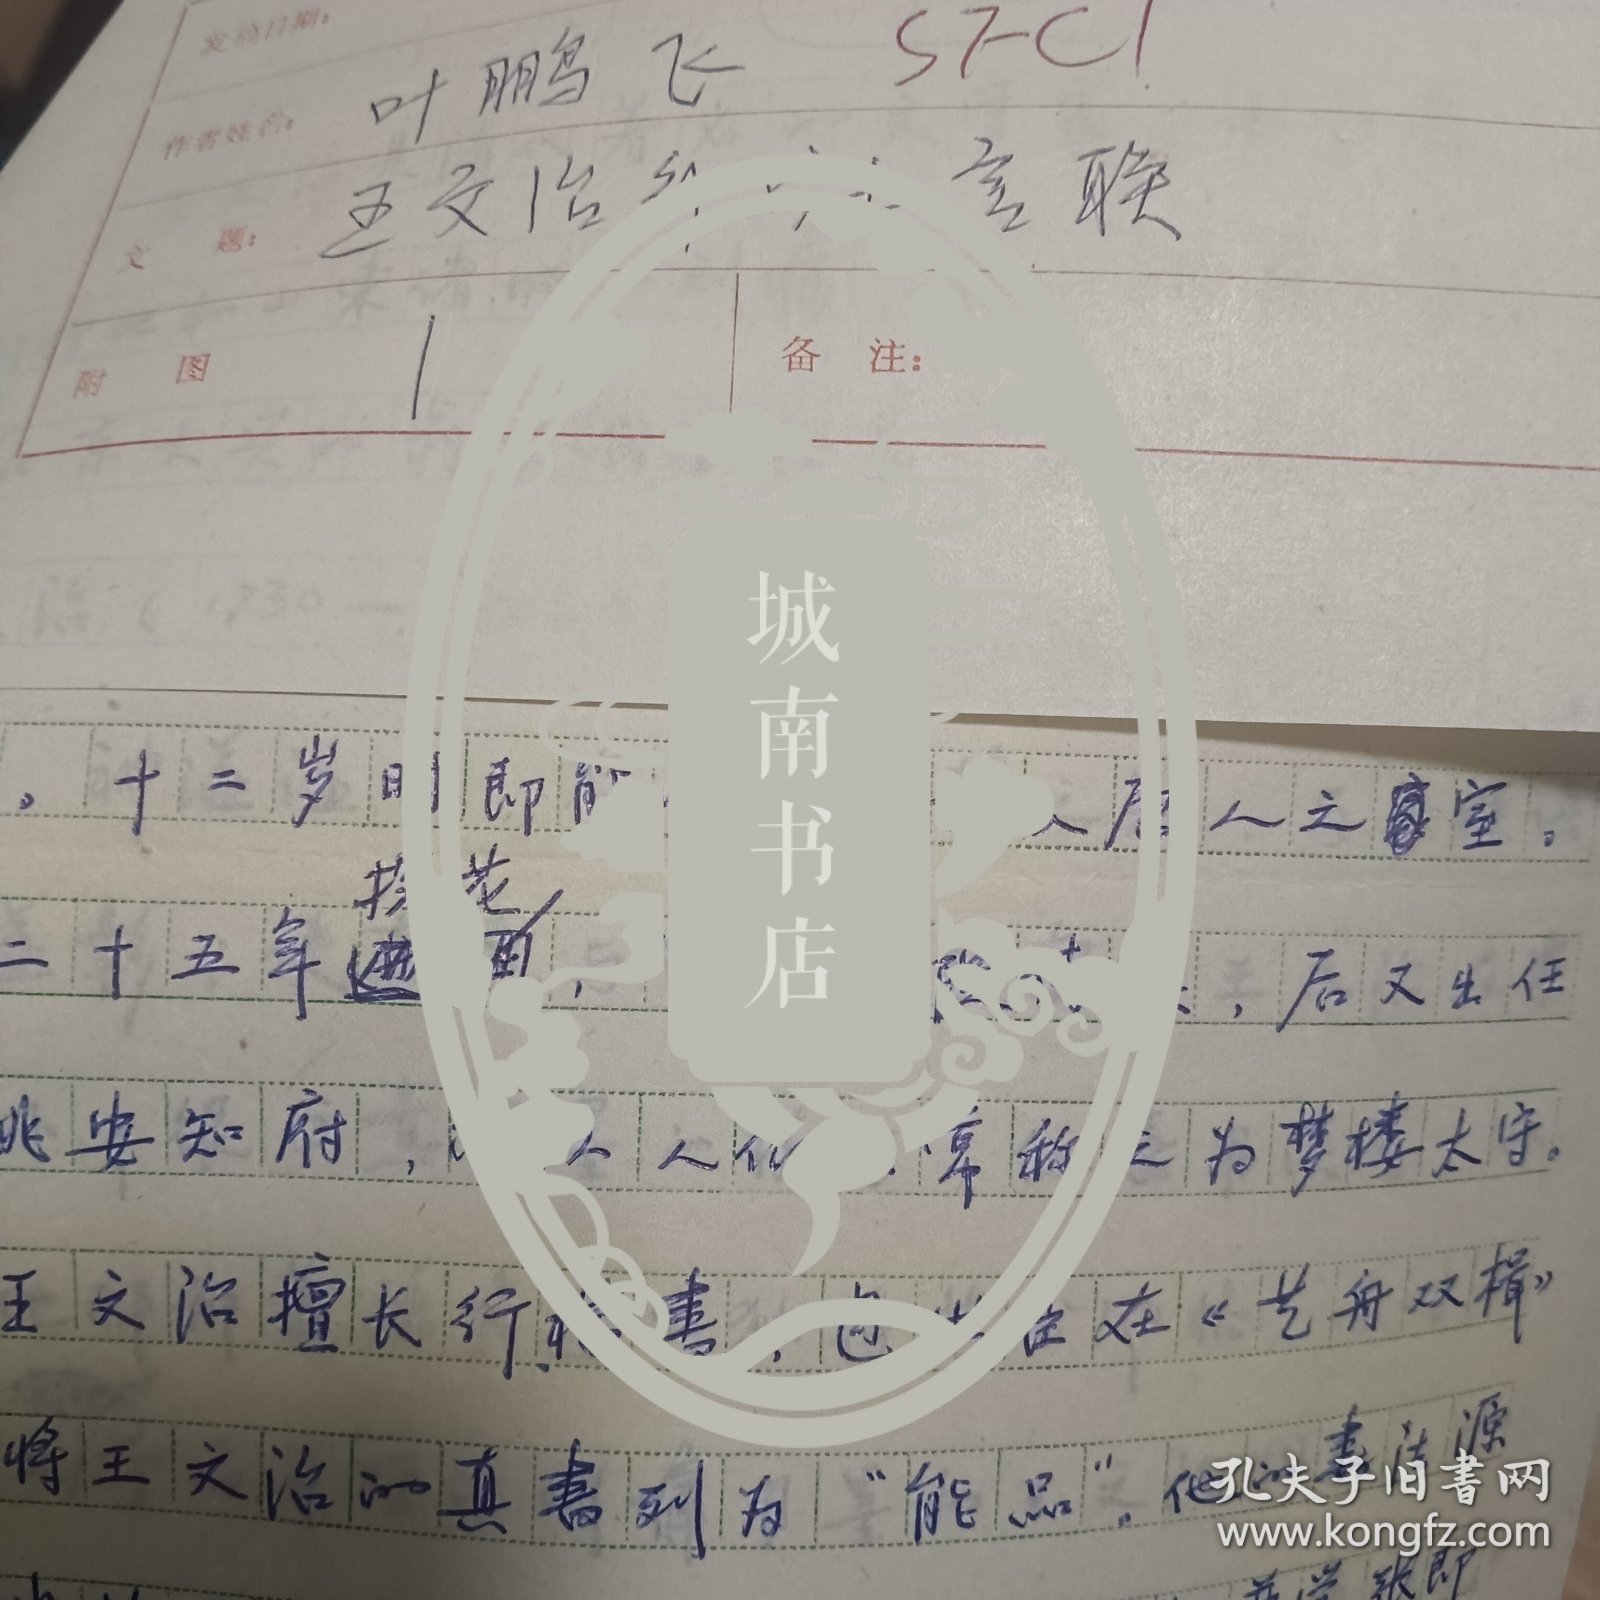 发稿日期：
作者姓名： 叶鹏飞 STC1
文 题： 王文治 言联
附 图 1 备 注：
城南书店
。十二岁时即能 入唐人之室。
探花
二十五年 ，后又出任
姚安知府， 人们 常称之为梦楼太守。
王文治擅长行楷书，包世臣在《艺舟双楫》
将王文治的真书列为“能品”。他的书法源
张即
孔夫子旧书网
www.kongfz.com